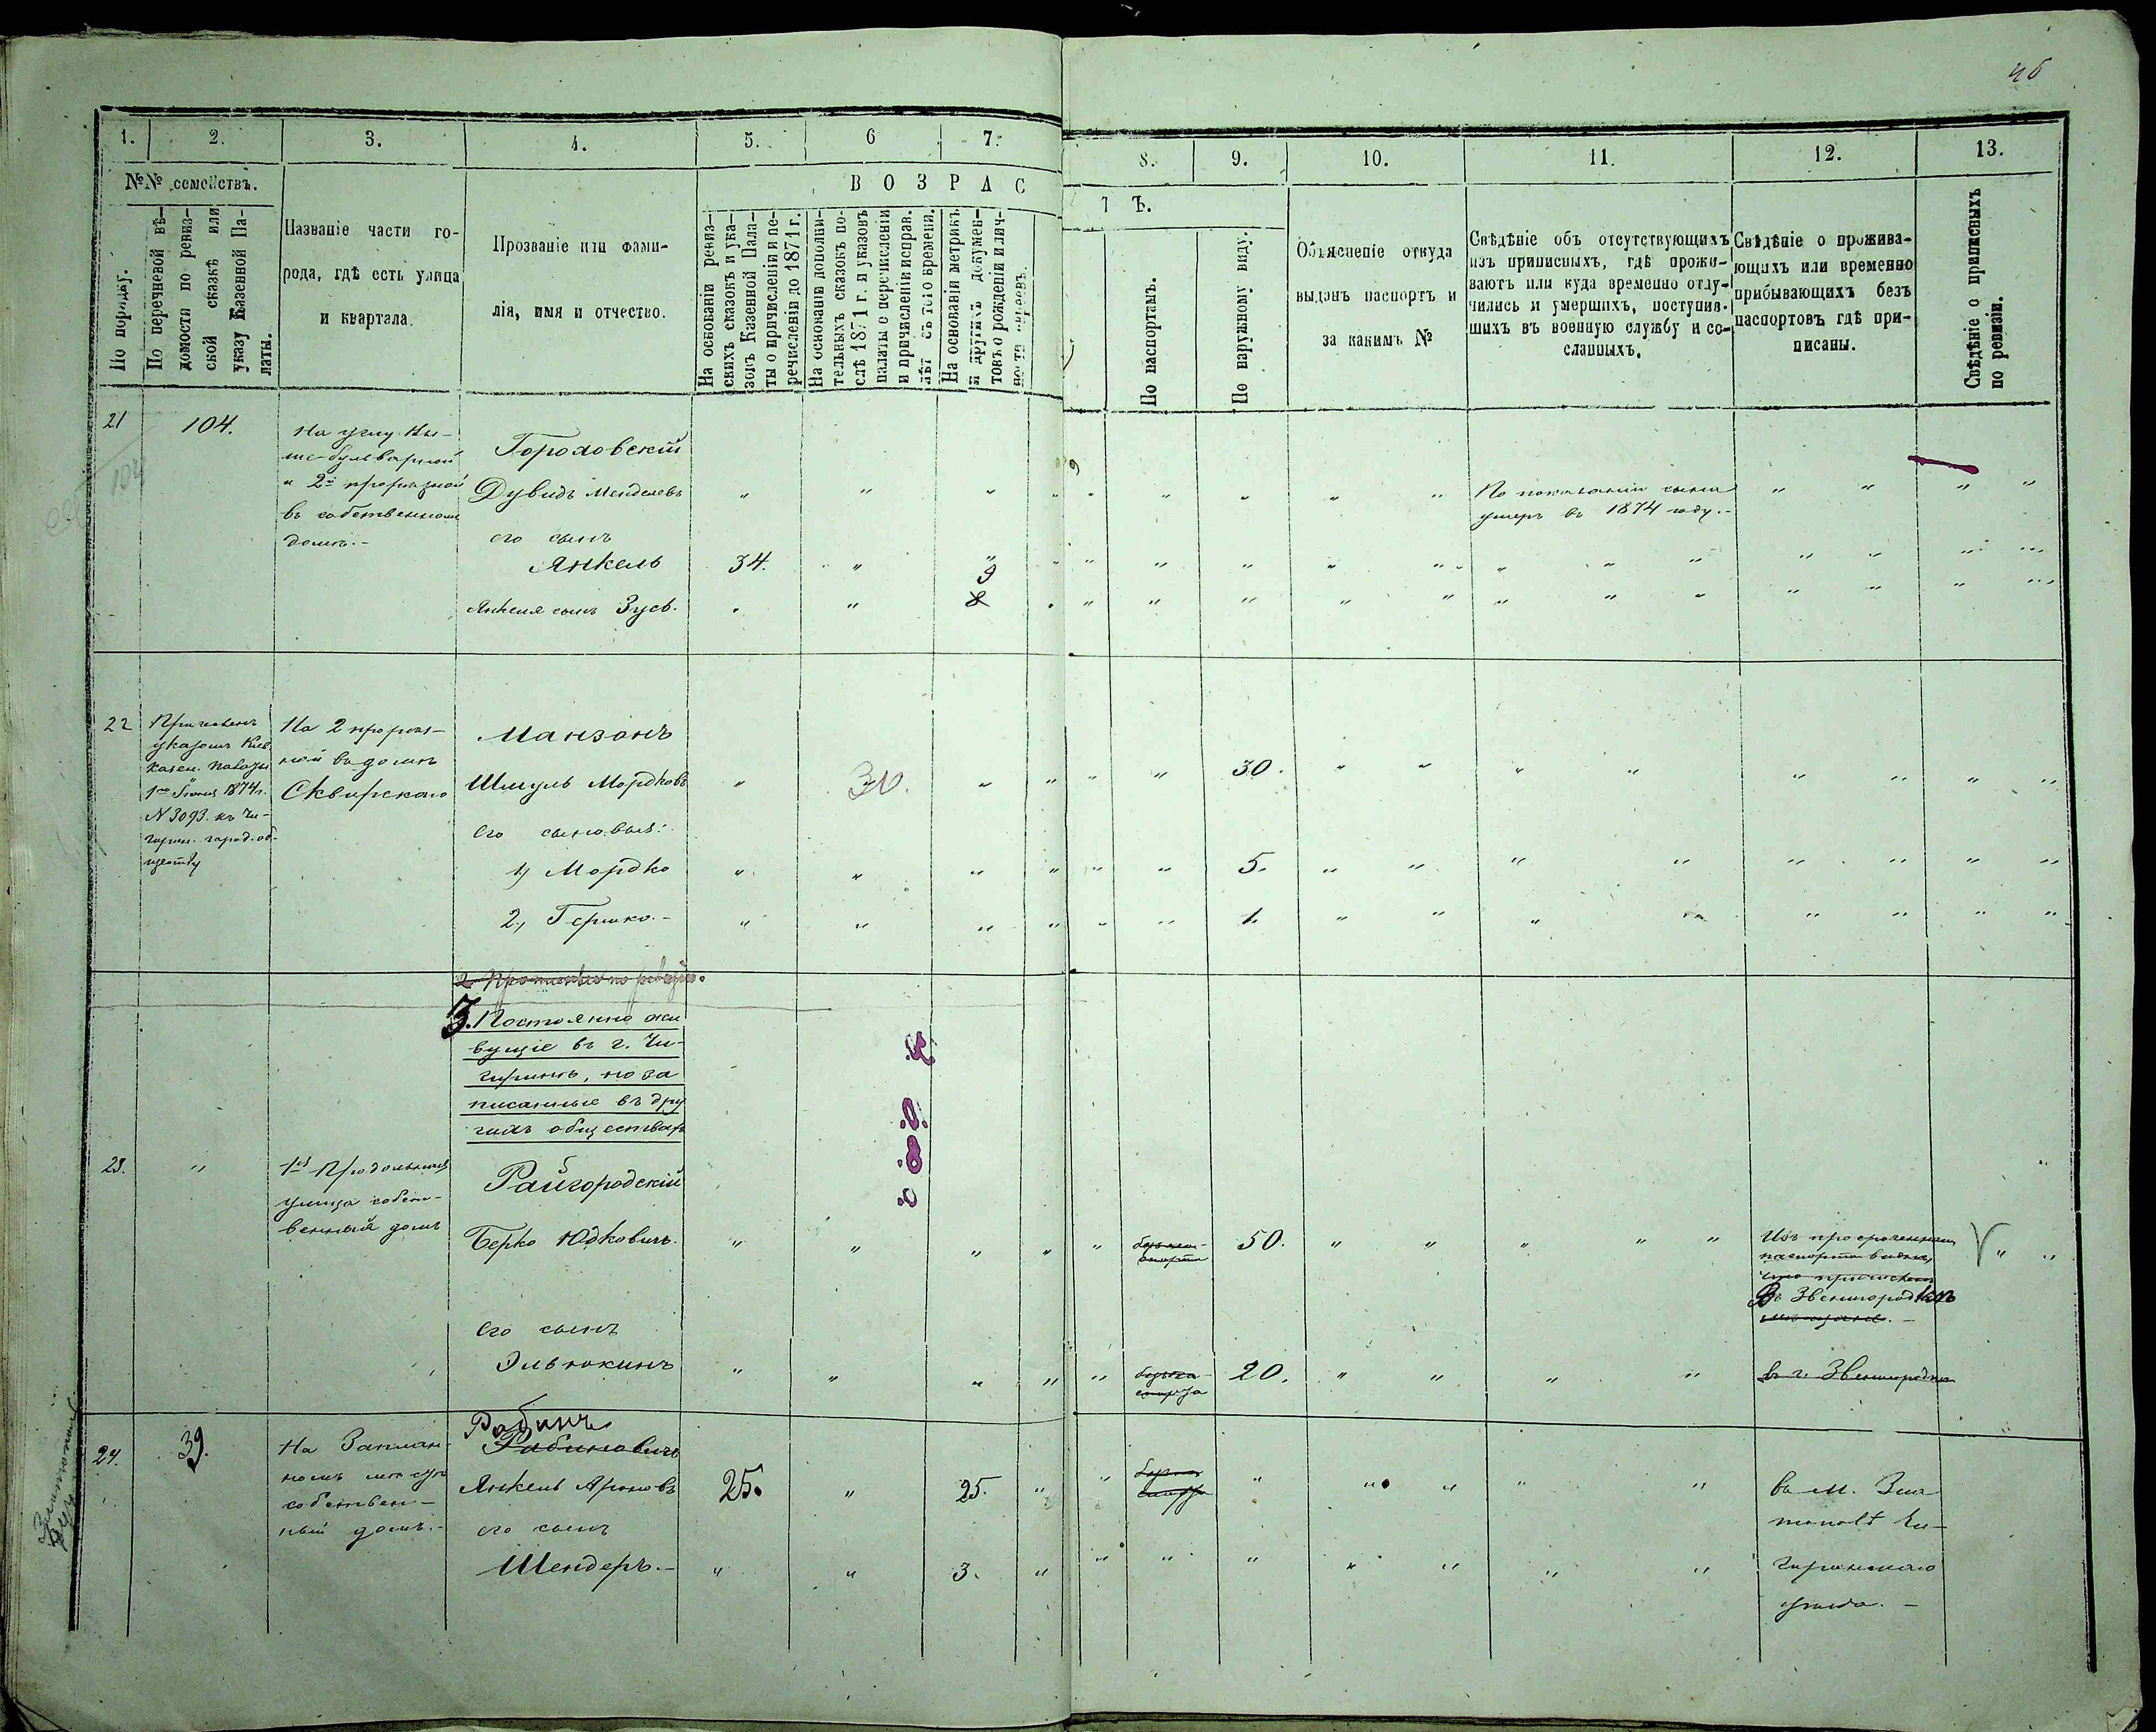 46
1.
2.
3.
4.
5.
6
7.
8.
9.
10.
11.
12.
13.
№№ семействъ.
В О З Р А С
Т Ъ.
По порядку.
По перечневой вѣ-
домости по ревиз-
ской сказкѣ или
указу Казенной Па-
латы.
Названіе части го-
рода, гдѣ есть улица
и квартала.
Прозваніе или фами-
лія, имя и отчество.
На основаніи ревиз-
скихъ сказокъ и ука-
зовъ Казенной Пала-
ты о причисленіи и пе-
речисленіи до 1871 г.
На основаніи дополни-
тельныхъ сказокъ по-
слѣ 1871 г. и указовъ
палаты о перечисленіи
и причисленіи исправ.
лѣт съ того времени.
На основаніи метрикъ
и другихъ докумен-
товъ о рожденіи и лич-
По паспортамъ.
По наружному виду.
Объясненіе откуда
выданъ паспортъ и
за какимъ №
Свѣдѣніе объ отсутствующихъ
изъ приписныхъ, гдѣ прожи-
ваютъ или куда временно отлу-
чились и умершихъ, поступив-
шихъ въ военную службу и со-
сланныхъ.
Свѣдѣніе о прожива-
ющихъ или временно
прибывающихъ безъ
паспортовъ гдѣ при-
писаны.
Свѣдѣніе о приписныхъ
по ревизіи.
21
104.
104
На углу Вы-
ше-бульварной
и 2й прорѣзной
въ собственномъ
домѣ.-
Городовскій
Дувидъ Менделевъ
По показанію сына
умеръ въ 1874 году.-
его сынъ
Янкель 34. "
Янкеля сынъ Зусь. 9
8
22
Причисленъ
указомъ Кіев.
Казен. Палаты
1го Іюня 1874 г.
N 3093. къ Чи-
гирин. город. об-
ществу
На 2 прорѣз-
ной въ домѣ
Сквирскаго
Манзонъ
Шмуль Мордковъ 30. 30.
Его сыновья:
1, Мордко 5.
2, Гершко.- 1.
3. Постоянно жи
вущіе въ г. Чи-
гиринѣ, но за
писанные въ дру
гихъ обществахъ
23.
1я Продольная
улица собст-
венный домъ
Райгородскій
Берко Юдковичъ. 50.
Изъ просроченнаго
паспорта видно,
что приписанъ
Въ Звенигородкѣ
Его сынъ
Эльюкинъ 20.
въ г. Звенигородкѣ
24.
39.
собствен-
ный домъ.-
Рабинъ
Рабиновичъ
Янкель Ароновъ 25. 25.
его сынъ
Шендеръ.- 3.
въ м. Зла
тополѣ Чи-
гиринскаго
уѣзда.-